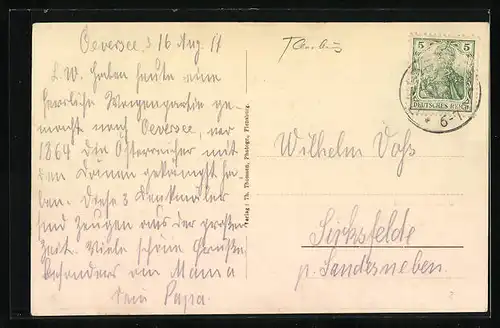 Oeversee, d 16 Aug. 11
L. W. Haben heute eine
herrliche Wagenpartie ge-
macht nach Oeversee, wo
1864 die Österreicher mit
den Dänen gekämpft ha-
ben. Diese 3 Denkmäler
sind Zeugen aus der großen
Zeit. Viele schöne Grüße
besonders an Mama
Dein Papa.
Verlag: Th. Thomsen, Photogr., Flensburg.
Flensburg
5 5
DEUTSCHES REICH
* 6-7
Wilhelm Voß
Sirksfelde
p. Sandesneben.